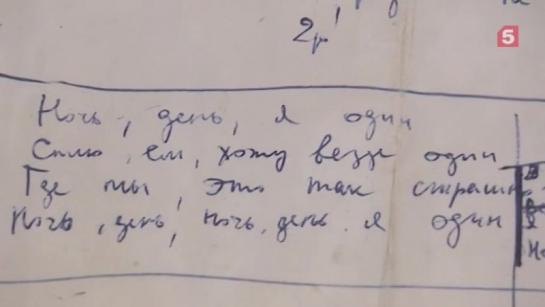 2р'
5
Ночь, день, я один
Сплю, ем, хожу везде один
Где ты, это так страшно
Ночь, день, ночь, день. я один